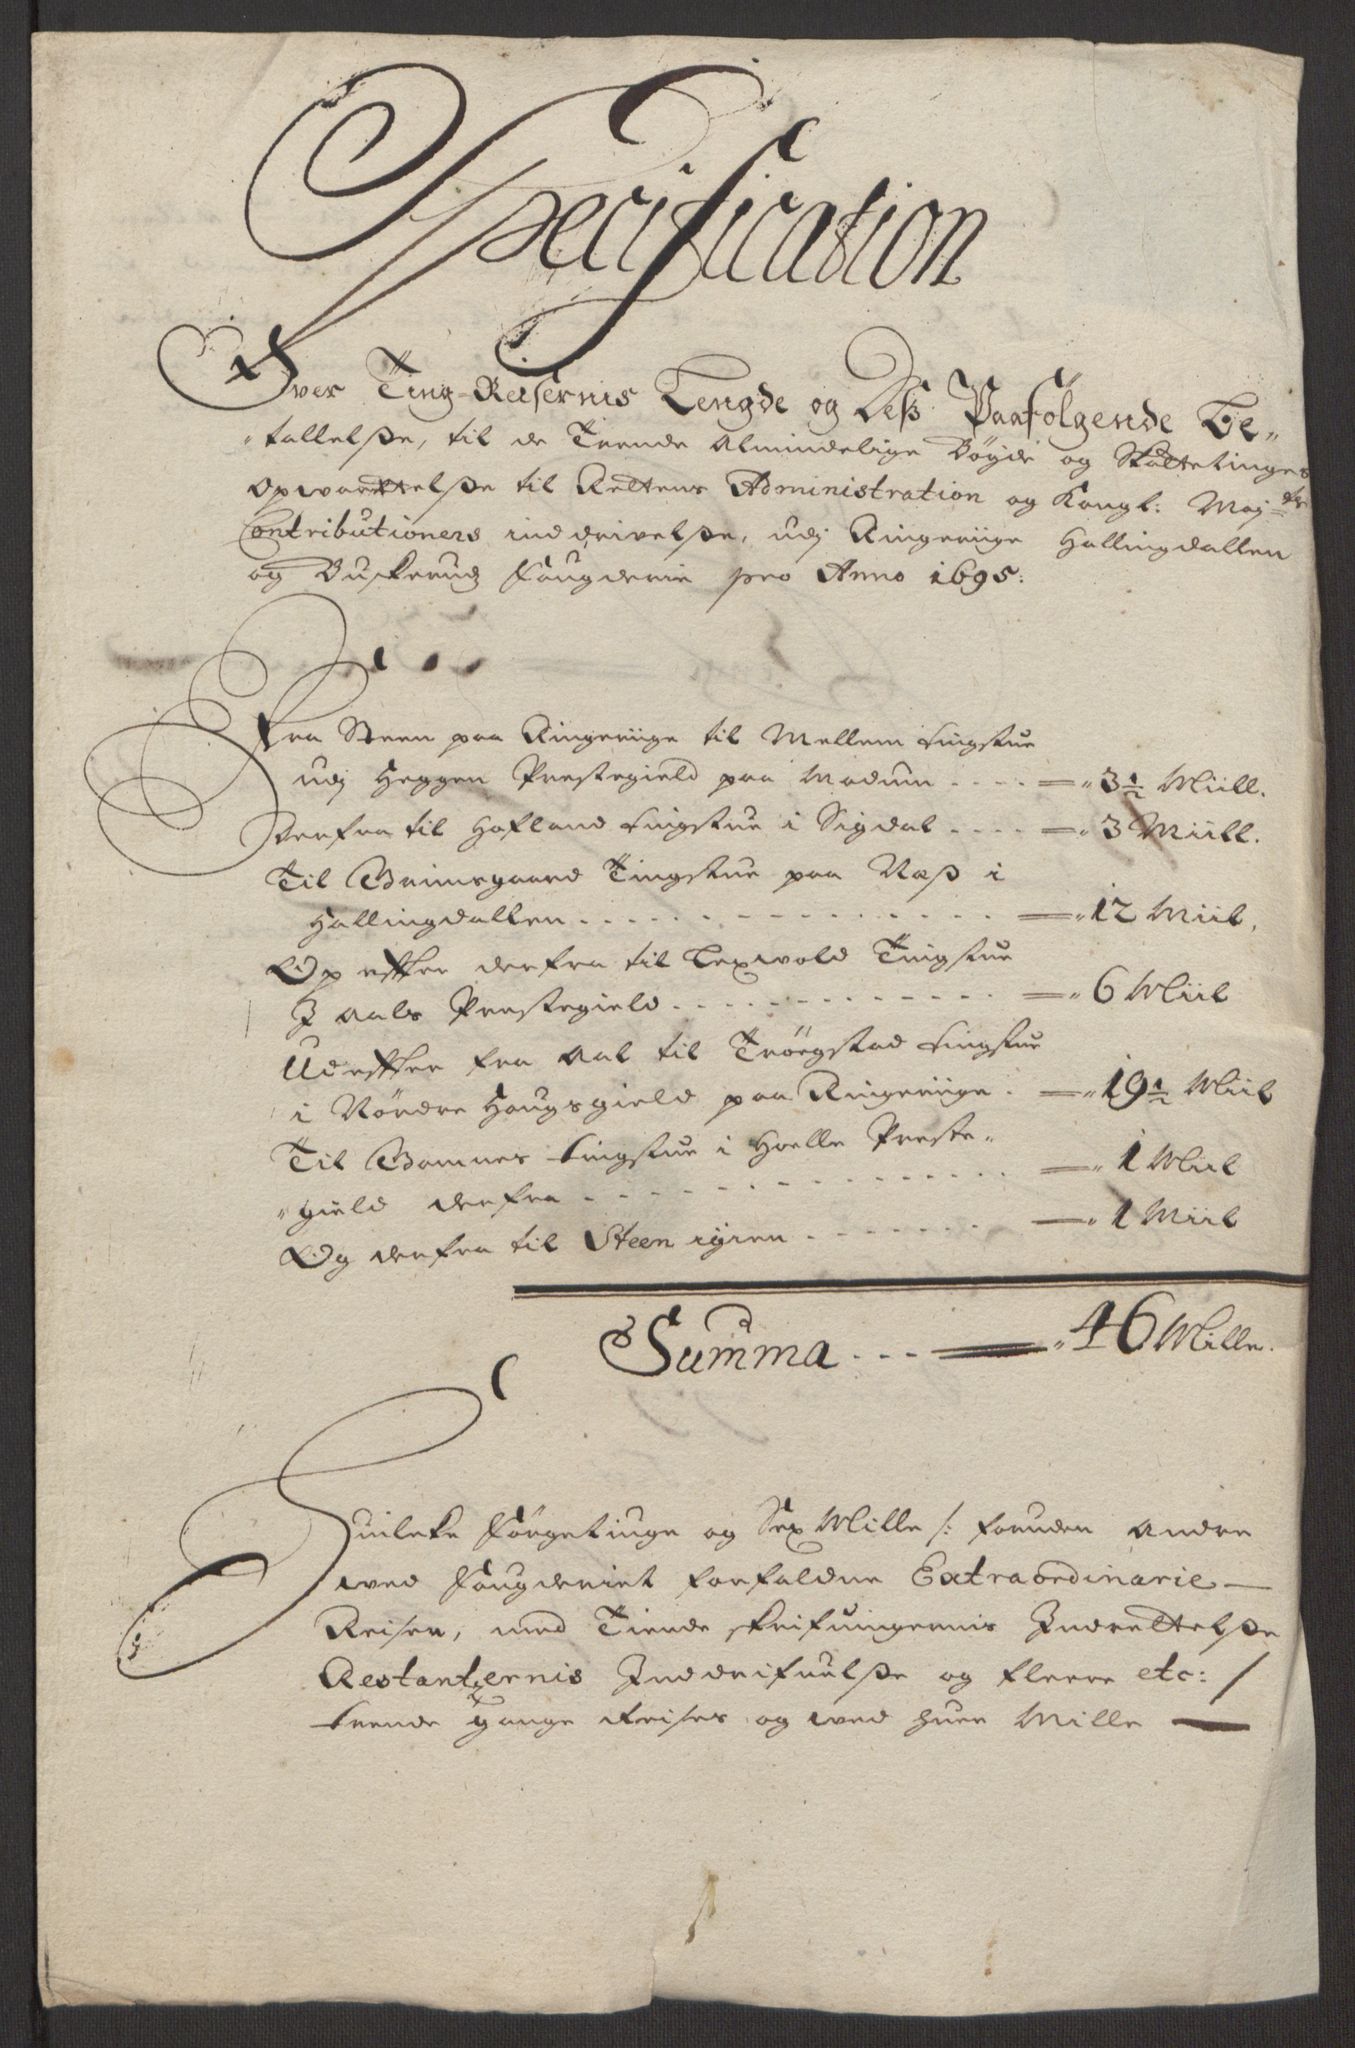 Specification
Over Ting-Reisernis Lengde og Deß Paafølgende Be„
„tallelße, til de Trende Almindelige Bøyde og Skattetinges
Opwarttelße til Rettens Administration og Kongl: Maj:ts
Contributioners inddrivelße, udj Ringeriige Hallingdallen
og Buskerudz Fougderie pro Anno 1695:
Fra Steen paa Ringeriige til Mellem tingstue
udj Heggen Prestegield paa Modum .... = „ 3½ Miill.
Derfra til Hafland tingstue i Sigdal .... = „ 3 Miill.
Til Grimsgaard Tingstue paa Næß i
Hallingdallen ............... = „ 12 Miil.
Op effter derfra til Lexwold Tingstue
J Aals Prestegield ............ = „ 6 Miil
Udeffter fra Aal til Trøgstad tingstue
i Nordre Haugsgield paa Ringeriige . = „ 19½ Miil
Til Gomnes tingstue i Holle Preste„
„gield derfra ............... = „ 1 Miil
Og derfra til Steen igien ....... = „ 1 Miil
Summa ... = „ 46 Mille.
Huilcke Förgetiuge og Sex Mille /: foruden andre
wed Fougderiet forfaldne Extraordinarie
Reiser, med Tiende skrifningernis Indrettelße
Restantzernis Inddrifuelße og fleere etc: /
trende gange Reises og wed huer Mille